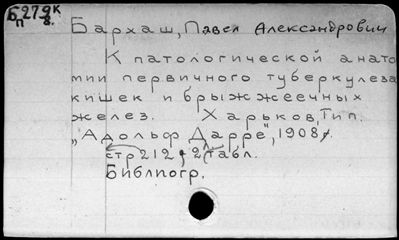 Б 279 к
п 8.
Бархаш, Павел Александрович
К патологической анато
мии первичного туберкулеза
кишек и брыжжеечных
желез. Харьков, Тип.
„Адольф Дарре", 1908.
стр 212, 2 табл.
Библиогр.